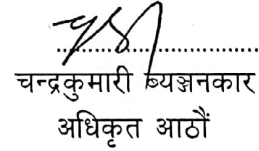 ..........................................
चन्द्रकुमारी ब्यञ्जनकार
अधिकृत आठौं